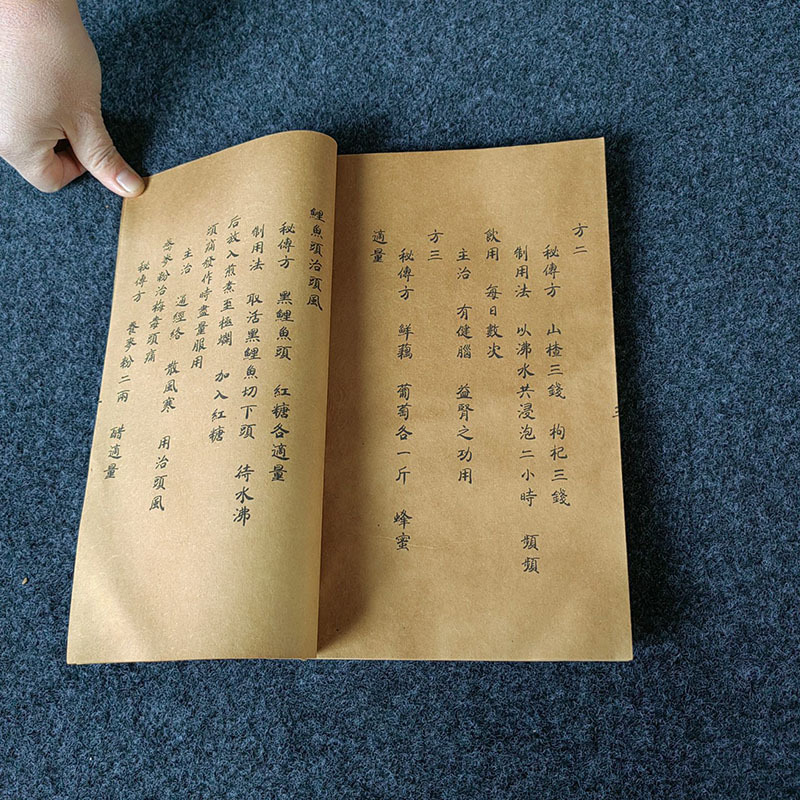 方二
秘傳方 山楂三錢 枸杞三錢
制用法 以沸水共浸泡二小時 頻頻
飲用 每日數次
主治 有健腦 益腎之功用
方三
秘傳方 鮮藕 葡萄各一斤 蜂蜜
適量
鯉魚頭治頭風
秘傳方 黑鯉魚頭 紅糖各適量
制用法 取活黑鯉魚切下頭 待水沸
后放入煎煮至極爛 加入紅糖
頭痛發作時盡量服用
主治 通經絡 散風寒 用治頭風
蕎麥粉治梅毒頭痛
秘傳方 蕎麥粉二兩 醋適量